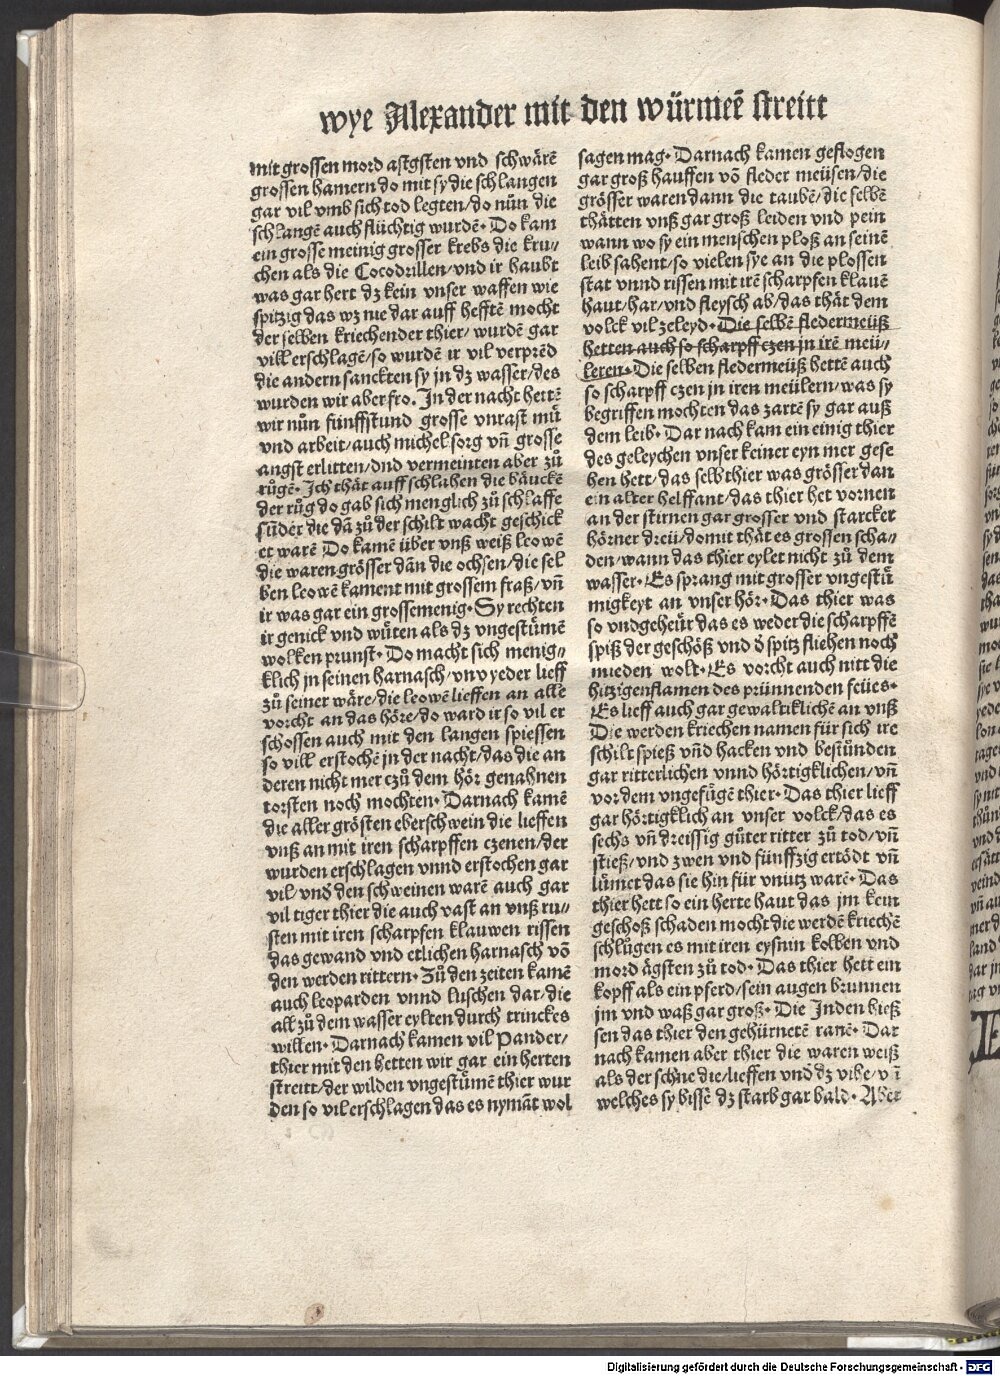 wye Alexander mit den würmeẽ streitt
mit grossen mord astgsten vnd schwärẽ
grossen hamern do mit sy die schlangen
gar vil vmb sich tod legten/do nůn die
schlangẽ auch flüchtig wurdẽ· Do kam
ein grosse meinig grosser krebs die kru//
chen als die Cocodrillen/vnd ir haubt
was gar hert dz kein vnser waffen wie
spitzig das wz nie dar auff hefftẽ mocht
der selben kriechender thier/ wurdẽ gar
vill erschlagẽ/so wurdẽ ir vil verprẽd
die andern sanckten sy jn dz wasser/des
wurden wir aber fro. In der nacht hettẽ
wir nůn fünffstund grosse vnrast mů
vnd arbeit/auch michel sorg vñ grosse
angst erlitten/dnd vermeinten aber zů
růgẽ· Ich thät auff schlahen die bäuckẽ
der růg do gab sich menglich zů schlaffe
sũder die dã zů der schilt wacht geschick
et warẽ Do kamẽ über vnß weiß leowẽ
die waren grösser dãn die ochsen/die sel
ben leowẽ kament mit grossem fraß/vñ
ir was gar ein grossemenig· Sy rechten
ir genick vnd wüten als dz vngestümẽ
wolken prunst· Do macht sich menig//
klich jn seinen harnasch/vnv yeder lieff
zů seiner wäre/die leowẽ lieffen an alle
vorcht an das höre/do ward ir so vil er
schossen auch mit den langen spiessen
so vill erstochẽ jn der nacht/das die an
deren nicht mer czů dem hör genahnen
torsten noch mochten· Darnach kamẽ
die aller grösten eberschwein die lieffen
vnß an mit iren scharpffen czenen/der
wurden erschlagen vnnd erstochen gar
vil/vnd den schweinen warẽ auch gar
vil tiger thier die auch vast an vnß ru//
sten mit iren scharpfen klauwen rissen
das gewand vnd etlichen harnasch võ
den werden rittern· Zů den zeiten kamẽ
auch leoparden vnnd luschen dar/die
all zů dem wasser eylten durch trinckes
willen· Darnach kamen vil Pander/
thier mit den hetten wir gar ein herten
streitt/der wilden vngestümẽ thier wur
den so vil erschlagen das es nymãt wol
sagen mag· Darnach kamen geflogen
gar groß hauffen võ fleder meüsen/die
grösser waren dann die taubẽ/die selbẽ
thätten vnß gar groß leiden vnd pein
wann wo sy ein menschen ploß an seinẽ
leib sahent/so vielen sye an die plossen
stat vnnd rissen mit irẽ scharpfen klauẽ
haut/har/vnd fleysch ab/das thät dem
volck vil zeleyd· Die selbẽ fledermeüß
hetten auch so scharpff czen jn irẽ meü//
leren· Die selben fledermeüß hettẽ auch
so scharpff czen jn iren meülern/was sy
begriffen mochten das zartẽ sy gar auß
dem leib· Dar nach kam ein einig thier
des geleychen vnser keiner eyn mer gese
hen hett/das selb thier was grösser dan
ein alter helffant/das thier het vornen
an der stirnen gar grosser vnd starcker
hörner dreü/domit thät es grossen scha//
den/wann das thier eylet nicht zů dem
wasser· Es sprang mit grosser vngestü
migkeyt an vnser hör· Das thier was
so vndgeheür das es weder die scharpffẽ
spiß der geschöß vnd d̕ spitz fliehen noch
mieden wolt· Es vorcht auch nitt die
hitzigen flamen des prünnenden feües·
Es lieff auch gar gewaltiklichẽ an vnß
Die werden kriechen namen für sich ire
schilt spieß vñd hacken vnd bestünden
gar ritterlichen vnnd hörtigklichen/vñ
vor dem vngefügẽ thier· Das thier lieff
gar hörtigklich an vnser volck/das es
sechs vñ dreissig güter ritter zů tod/vñ
stieß/vnd zwen vnd fünffzig ertödt vñ
lümet das sie hin für vnutz warẽ· Das
thier hett so ein herte haut das jm kein
geschoß schaden mocht die werdẽ kriechẽ
schlůgen es mit iren eysnin kolben vnd
mord ägsten zů tod· Das thier hett ein
kopff als ein pferd/sein augen brunnen
jm vnd waß gar groß· Die Inden hieß
sen das thier den gehürnetẽ ranẽ· Dar
nach kamen aber thier die waren weiß
als der schne die/lieffen vnd dz vihe/vñ
welches sy bissẽ dz starb gar bald· Aber
Digitalisierung gefördert durch die Deutsche Forschungsgemeinschaft - DFG